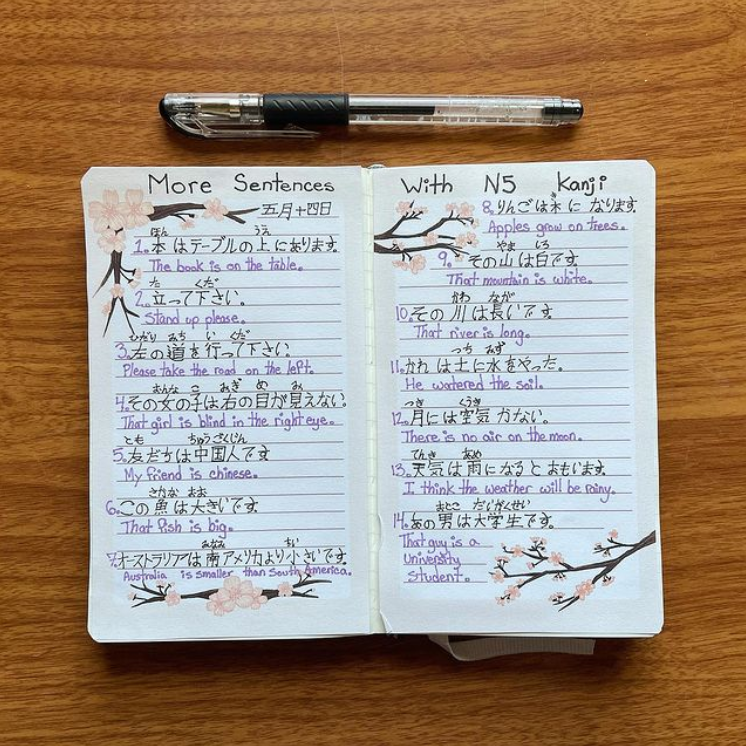 More Sentences
五月十四日
ほん うえ
1. 本はテーブルの上にあります。
The book is on the table.
た くだ
2. 立って下さい。
Stand up please.
ひだり みち い くだ
3. 左の道を行って下さい。
Please take the road on the left.
おんな こ みぎ め み
4. その女の子は右の目が見えない。
That girl is blind in the right eye.
とも ちゅうごくじん
5. 友だちは中国人です
My friend is chinese.
さかな おお
6. この魚は大きいです。
That fish is big.
みなみ ちい
7. オーストラリアは南アメリカより小さいです。
Australia is smaller than South America.
With N5 Kanji
き
8. りんごは木に なります。
Apples grow on trees.
やま しろ
9. その山は白です
That mountain is white.
かわ なが
10. その川は長いです。
That river is long.
つち みず
11. かれは土に水をやった。
He watered the soil.
つき くうき
12. 月には空気がない。
There is no air on the moon.
てんき あめ
13. 天気は雨になるとおもいます。
I think the weather will be rainy.
おとこ だいがくせい
14. あの男は大学生です。
That guy is a
University
Student.